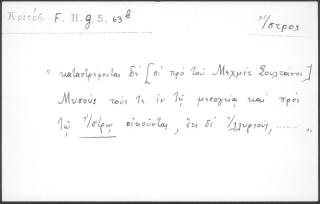 Κριτόβ. F. H. g. 5. 63ᵇ
Ἴστρος
"καταστρέφονται δὲ [οἱ πρὸ τοῦ Μεχμὲτ Σουλτάνοι]
Μυσοὺς τούς τε ἐν τῇ μεσογείᾳ καὶ πρὸς
τῷ Ἴστρῳ οἰκοῦντας, ἔτι δὲ Ἰλλυριούς, ......"